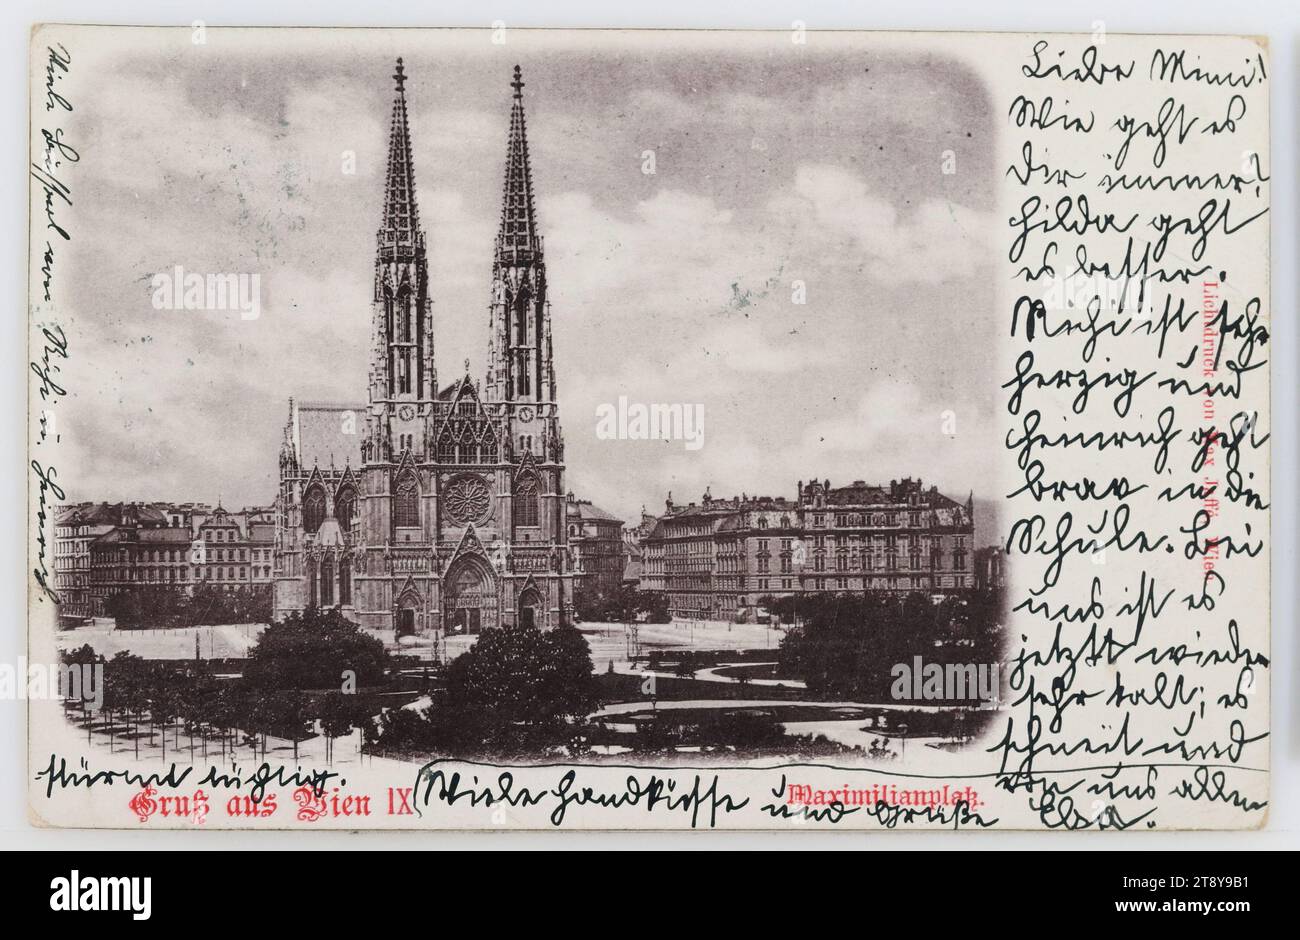 Liebe Mimi!
Wie geht es
Dir immer?
Hilda geht
es besser.
Richi ist sehr
herzig und
Heinrich geht
brav in die
Schule. Bei
uns ist es
jetzt wieder
sehr kalt; es
schneit und
stürmt tüchtig.
Viele Handküsse und Grüße
von uns allen
Eba.
Viele Bussel von Richi u. Heinrich.
Gruß aus Wien IX
Maximilianplatz.
Lichtdruck von Max Jaffé, Wien
alamy
Image ID: 2T8Y9B1
www.alamy.com